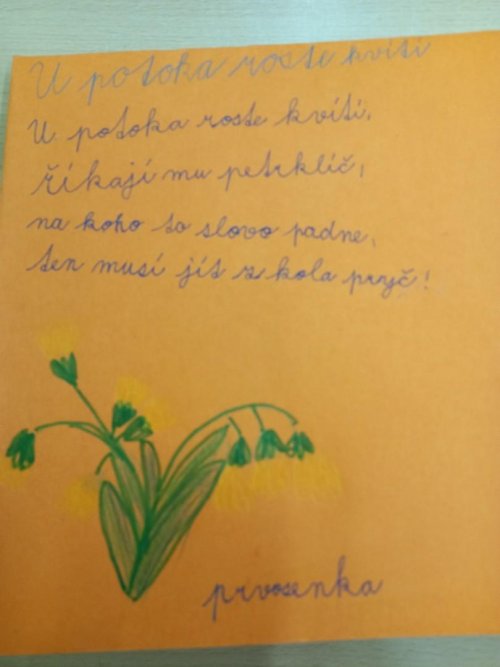 U potoka roste kvítí
U potoka roste kvítí,
říkají mu petrklíč,
na koho to slovo padne,
ten musí jít z kola pryč!
prvosenka